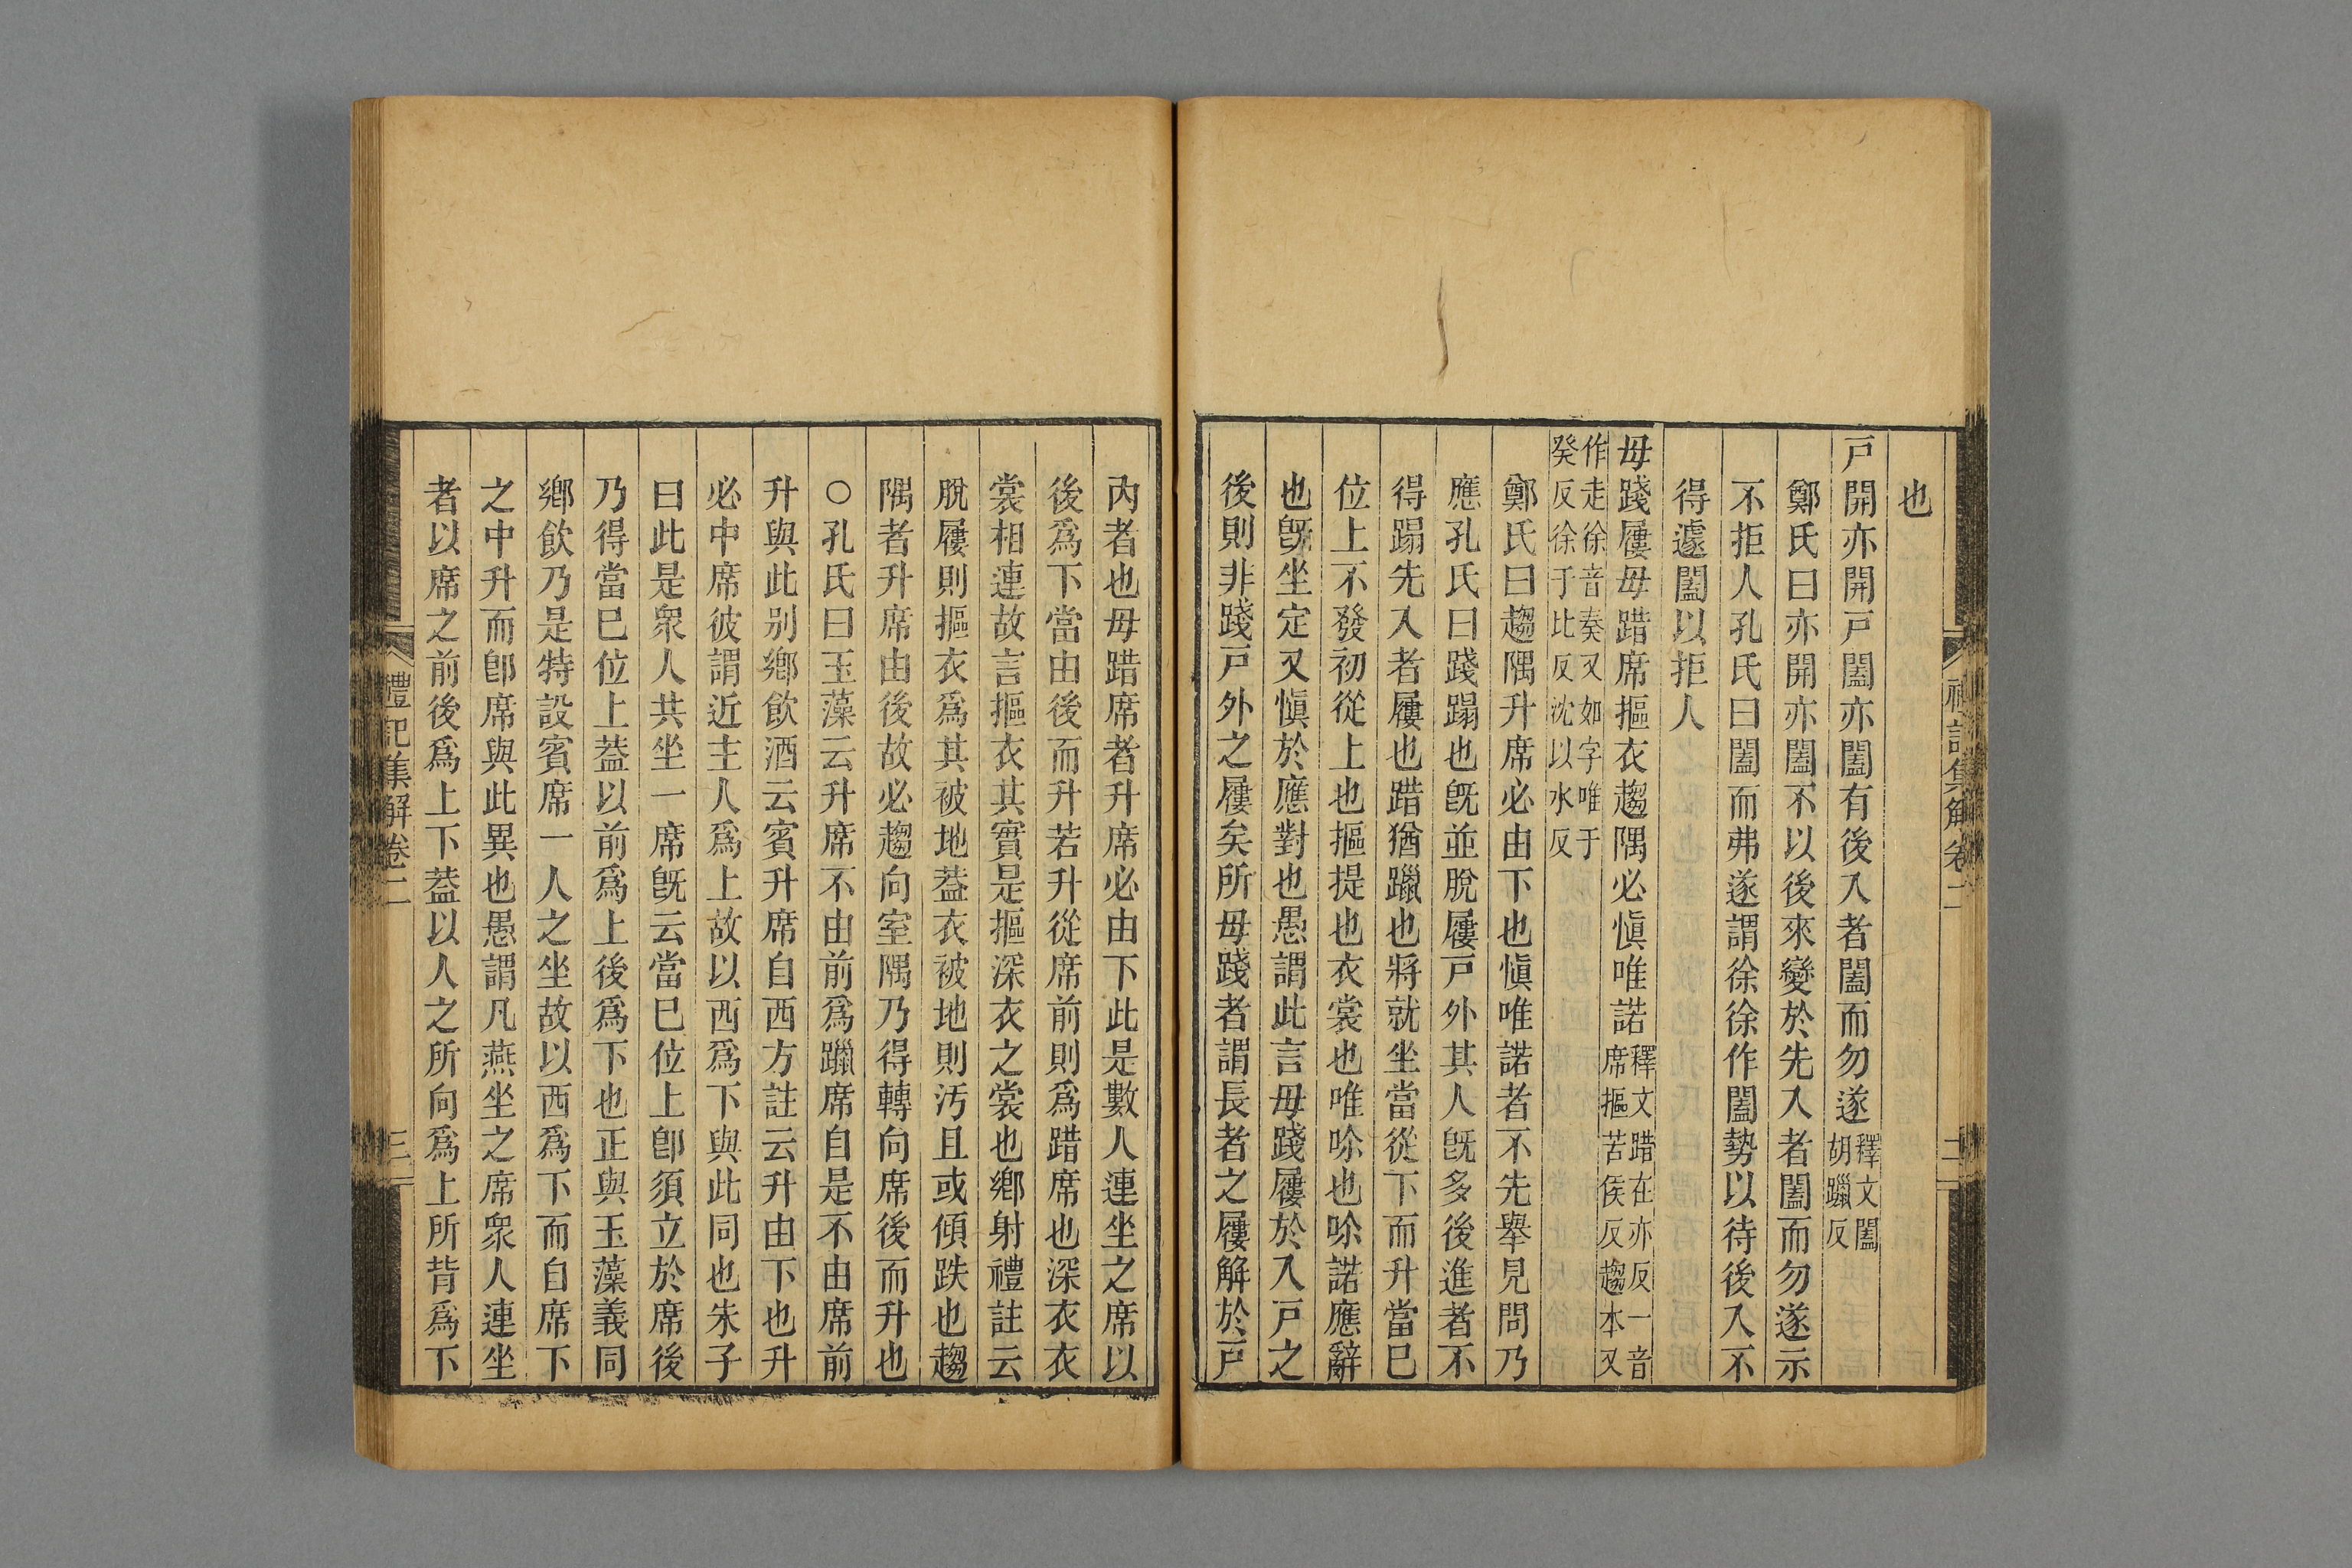 禮記集解卷二
也
戸開亦開戸闔亦闔有後入者闔而勿遂釋文闔胡臘反
鄭氏曰亦開亦闔不以後來變於先入者闔而勿遂示
不拒人孔氏曰闔而弗遂謂徐徐作闔勢以待後入不
得遽闔以拒人
毋踐屨毋踖席摳衣趨隅必慎唯諾釋文踖在亦反一音席摳苦侯反趨本又
作走徐音奏又如字唯于癸反徐于比反沈以水反
鄭氏曰趨隅升席必由下也慎唯諾者不先舉見問乃
應孔氏曰踐蹋也旣並脫屨戸外其人旣多後進者不
得蹋先入者屨也踖猶躐也將就坐當從下而升當已
位上不發初從上也摳提也衣裳也唯唹也唹諾應辭
也旣坐定又慎於應對也愚謂此言毋踐屨於入戸之
後則非踐戸外之屨矣所毋踐者謂長者之屨解於戸
內者也毋踖席者升席必由下此是數人連坐之席以
後爲下當由後而升若升從席前則爲踖席也深衣衣
裳相連故言摳衣其實是摳深衣之裳也鄉射禮註云
脫屨則摳衣爲其被地葢衣被地則汚且或傾跌也趨
隅者升席由後故必趨向室隅乃得轉向席後而升也
○孔氏曰玉藻云升席不由前爲躐席自是不由席前
升與此别鄉飲酒云賓升席自西方註云升由下也升
必中席彼謂近主人爲上故以西爲下與此同也朱子
曰此是衆人共坐一席旣云當已位上卽須立於席後
乃得當已位上葢以前爲上後爲下也正與玉藻義同
鄉飲乃是特設賓席一人之坐故以西爲下而自席下
之中升而卽席與此異也愚謂凡燕坐之席衆人連坐
者以席之前後爲上下葢以人之所向爲上所背爲下
禮記集解卷二
三